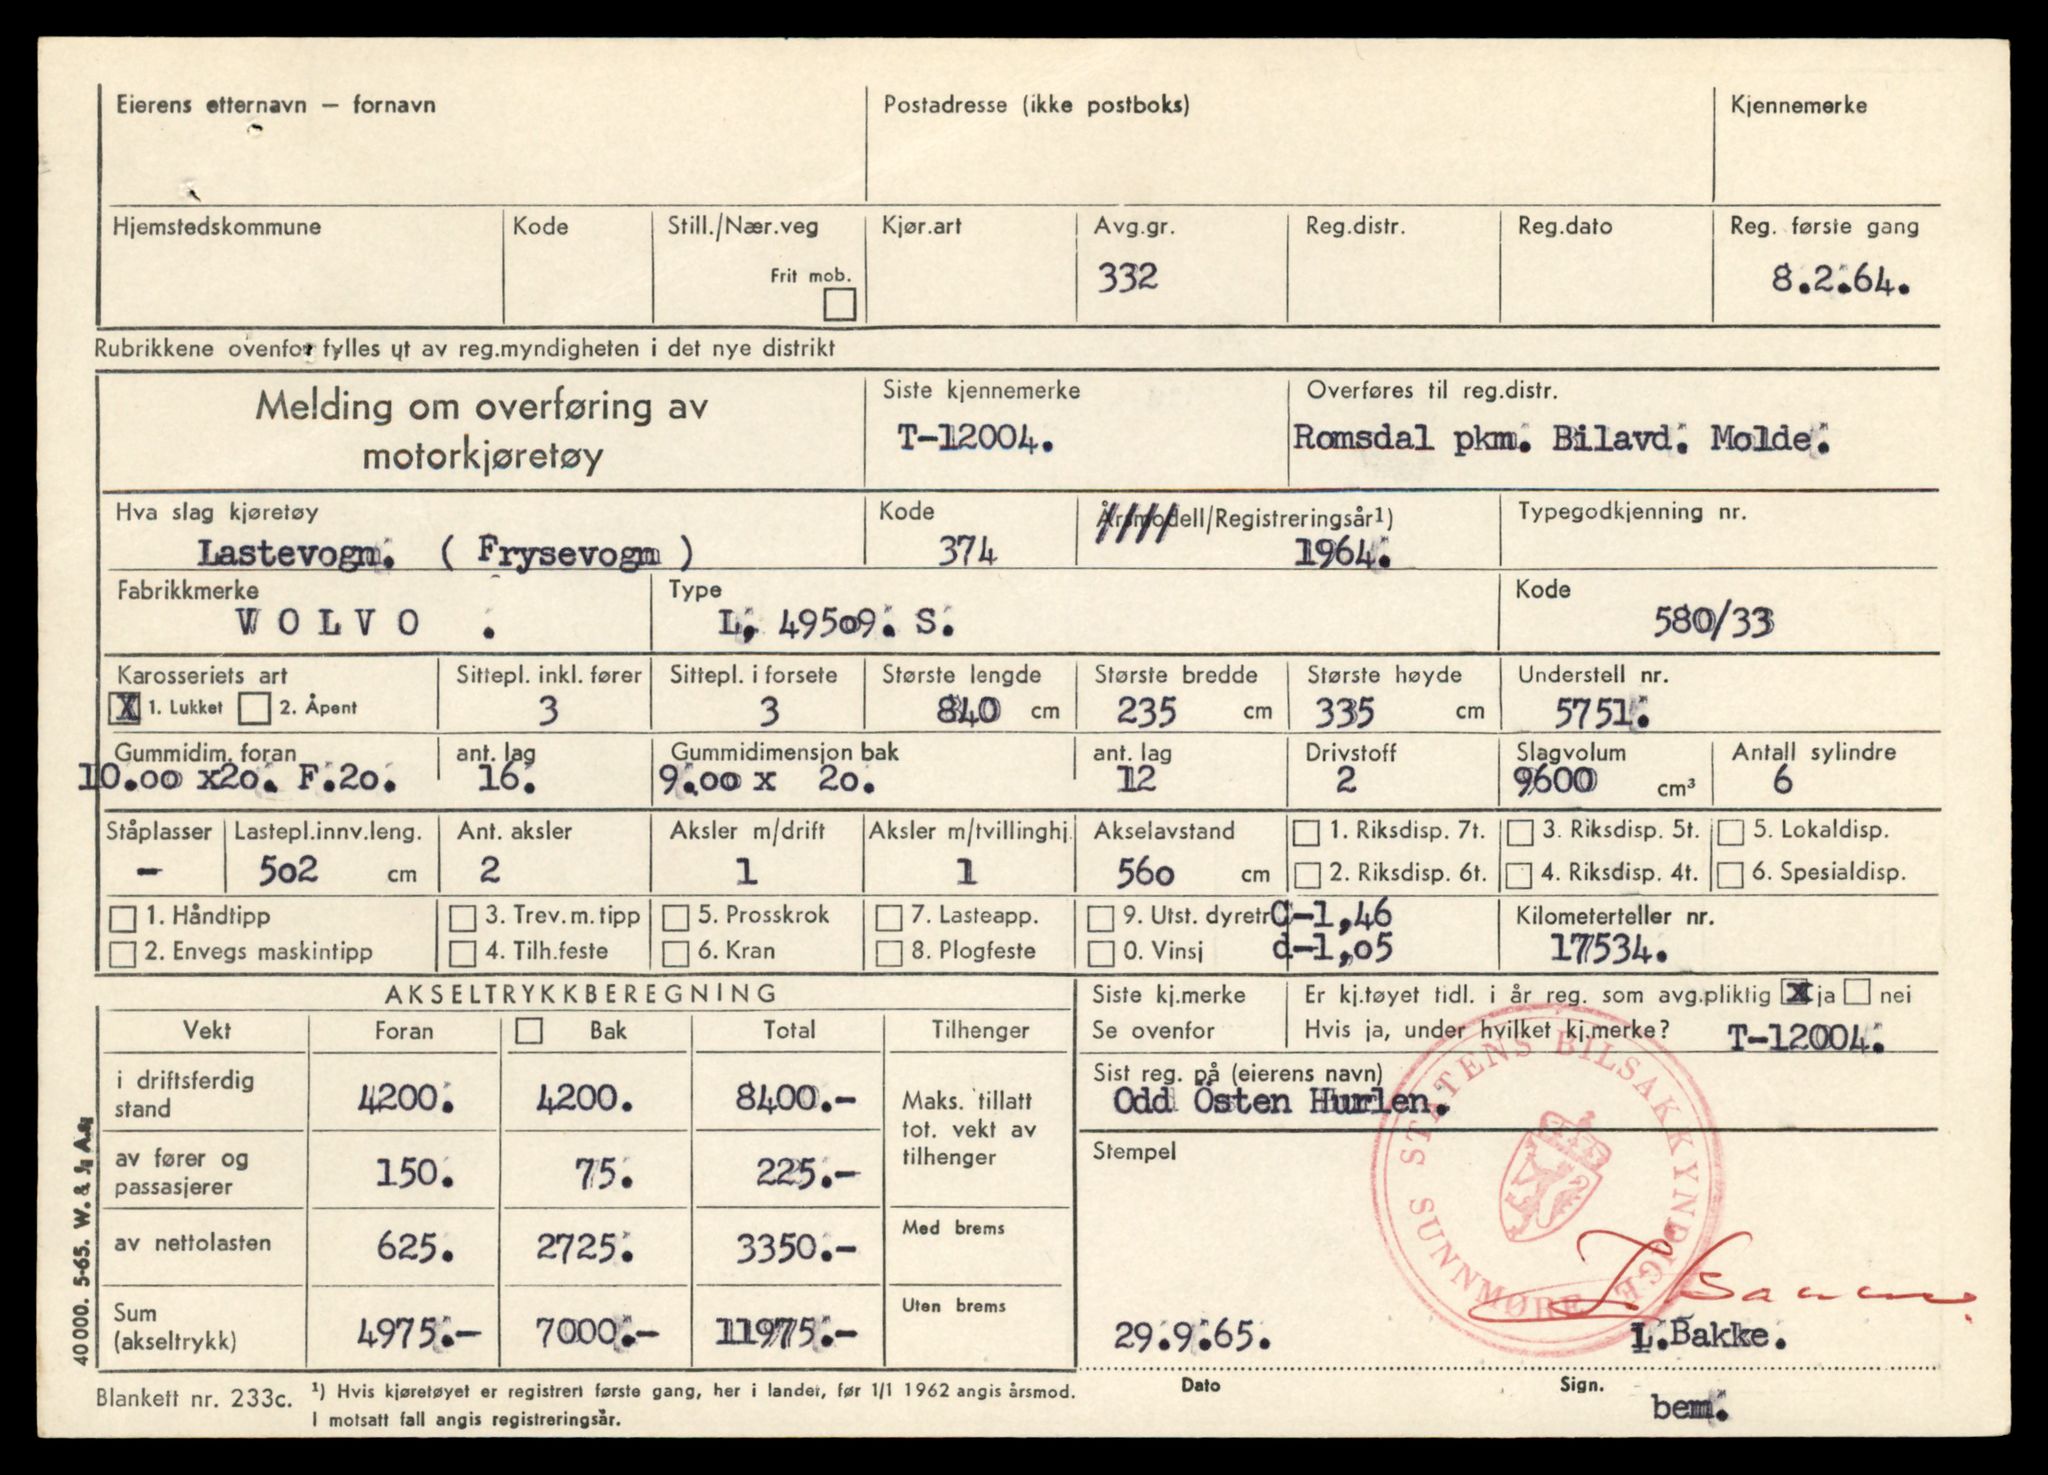 Eierens etternavn — fornavn Postadresse (ikke postboks) Kjennemerke
Hjemstedskommune Kode Still./Nær.veg Kjør.art Avg.gr. Reg.distr. Reg.dato Reg. første gang
Frit mob. 332 8.2.64.
Rubrikkene ovenfor fylles ut av reg.myndigheten i det nye distrikt
Melding om overføring av Siste kjennemerke Overføres til reg.distr.
motorkjøretøy T-12004. Romsdal pkm. Bilavd. Molde.
Hva slag kjøretøy Kode Årsmodell/Registreringsår¹) Typegodkjenning nr.
Lastevogn. ( Frysevogn ) 374 1964.
Fabrikkmerke Type Kode
WOLVO . L. 49509. S. 580/33
Karosseriets art Sittepl. inkl. fører Sittepl. i forsete Største lengde Største bredde Største høyde Understell nr.
X 1. Lukket 2. Åpent 3 3 840 cm 235 cm 335 cm 5751.
Gummidim. foran ant. lag Gummidimensjon bak ant. lag Drivstoff Slagvolum Antall sylindre
10.00 x20. F.20. 16. 9.00 x 20. 12 2 9600 cm³ 6
Ståplasser Lastepl.innv.leng. Ant. aksler Aksler m/drift Aksler m/tvillinghj. Akselavstand 1. Riksdisp. 7t. 3. Riksdisp. 5t. 5. Lokaldisp.
- 502 cm 2 1 1 560 cm 2. Riksdisp. 6t. 4. Riksdisp. 4t. 6. Spesialdisp.
1. Håndtipp 3. Trev.m.tipp 5. Prosskrok 7. Lasteapp. 9. Utst. dyretr C-1,46 Kilometerteller nr.
2. Envegs maskintipp 4. Tilh.feste 6. Kran 8. Plogfeste 0. Vinsj d-1,05 17534.
AKSELTRYKKBEREGNING Siste kj.merke Er kj.tøyet tidl. i år reg. som avg.pliktig X ja nei
Vekt Foran Bak Total Tilhenger Se ovenfor Hvis ja, under hvilket kj.merke? T-12004.
i driftsferdig stand 4200. 4200. 8400.- Maks. tillatt tot. vekt av tilhenger
Sist reg. på (eierens navn)
Odd Östen Hurlen.
av fører og passasjerer 150. 75. 225.-
Stempel
STATENS BILSAKKYNDIGE
SUNNMØRE
av nettolasten 625. 2725. 3350.- Med brems
Sum (akseltrykk) 4975.- 7000.- 11975.- Uten brems
29.9.65. L.Bakke.
Dato Sign.
bem.
40000. 5-65. W. & J. A.s
Blankett nr. 233c. ¹) Hvis kjøretøyet er registrert første gang, her i landet, før 1/1 1962 angis årsmod.
I motsatt fall angis registreringsår.